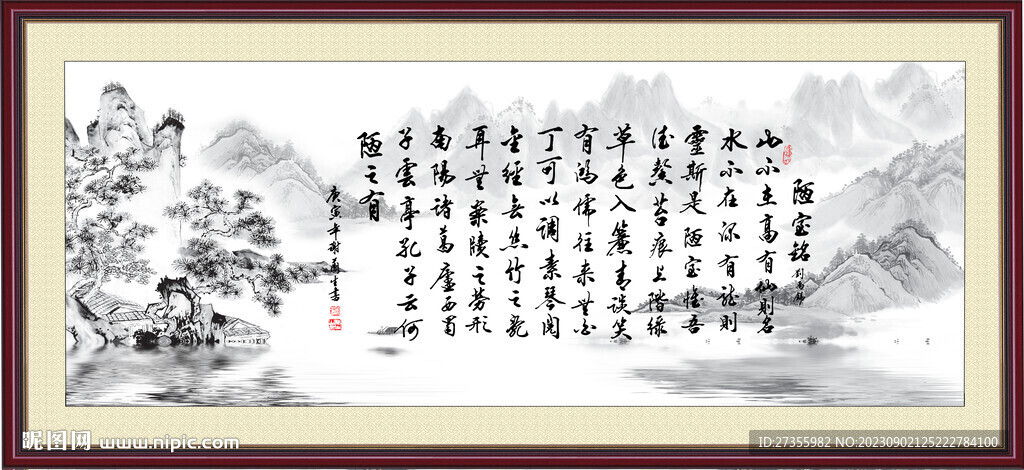 陋室铭 刘禹锡
山不在高有仙则名
水不在深有龙则
靈斯是陋室惟吾
德馨苔痕上階绿
草色入簾青谈笑
有鸿儒往来無白
丁可以调素琴阅
金经无丝竹之乱
耳無案牍之劳形
南陽諸葛廬西蜀
子雲亭孔子云何
陋之有
庚寅年谢
生书
昵图网 www.nipic.com
ID:27355982 NO:20230902125222784100